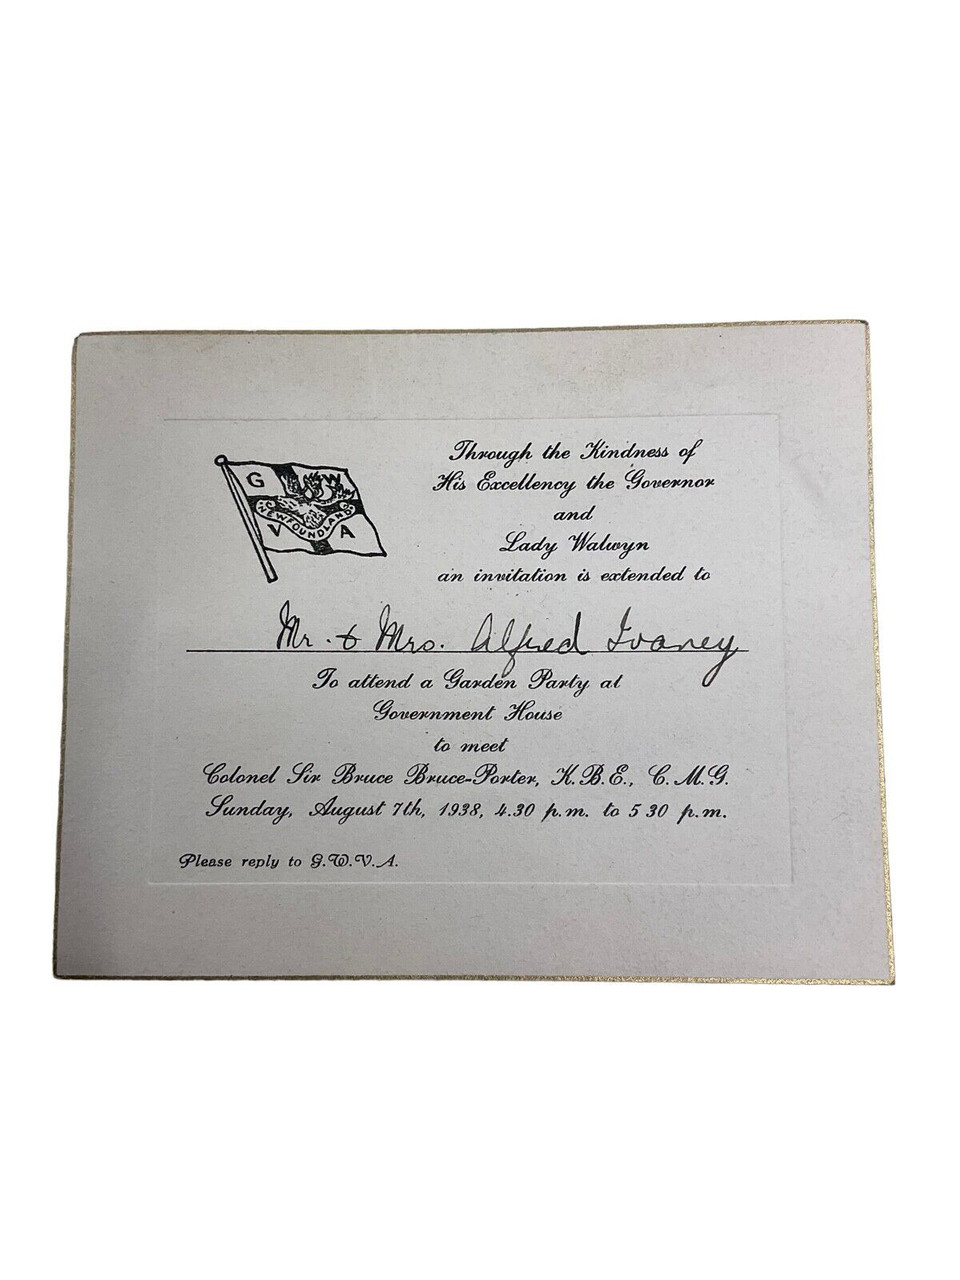 G W
NEWFOUNDLAND
V A
Through the Kindness of
His Excellency the Governor
and
Lady Walwyn
an invitation is extended to
Mr. & Mrs. Alfred Ivaney
To attend a Garden Party at
Government House
to meet
Colonel Sir Bruce Bruce-Porter, K.B.E., C.M.G.
Sunday, August 7th, 1938, 4.30 p.m. to 5 30 p.m.
Please reply to G.W.V.A.